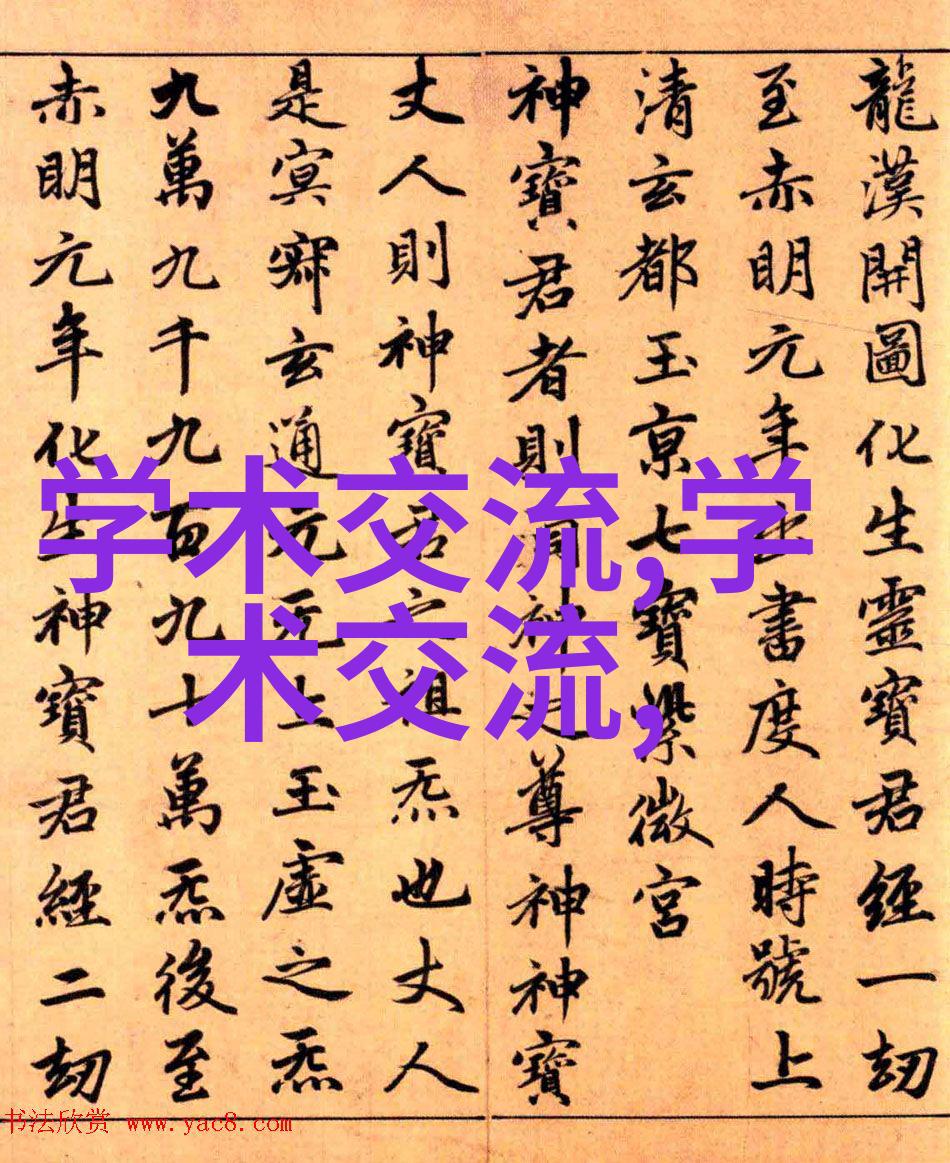 龍漢開圖化生靈寶君經一劫
至赤明元年出書度人時號上
清玄都玉京七寶紫微宮
神寶君者則洞神尊神神寶
丈人則神寶君之祖炁也丈人
是冥寂玄通元无上玉虛之炁
九萬九千九百九十萬炁後至
赤明元年化生神寶君經二劫
学术交流,学
术交流,
书法欣赏 www.yac8.com